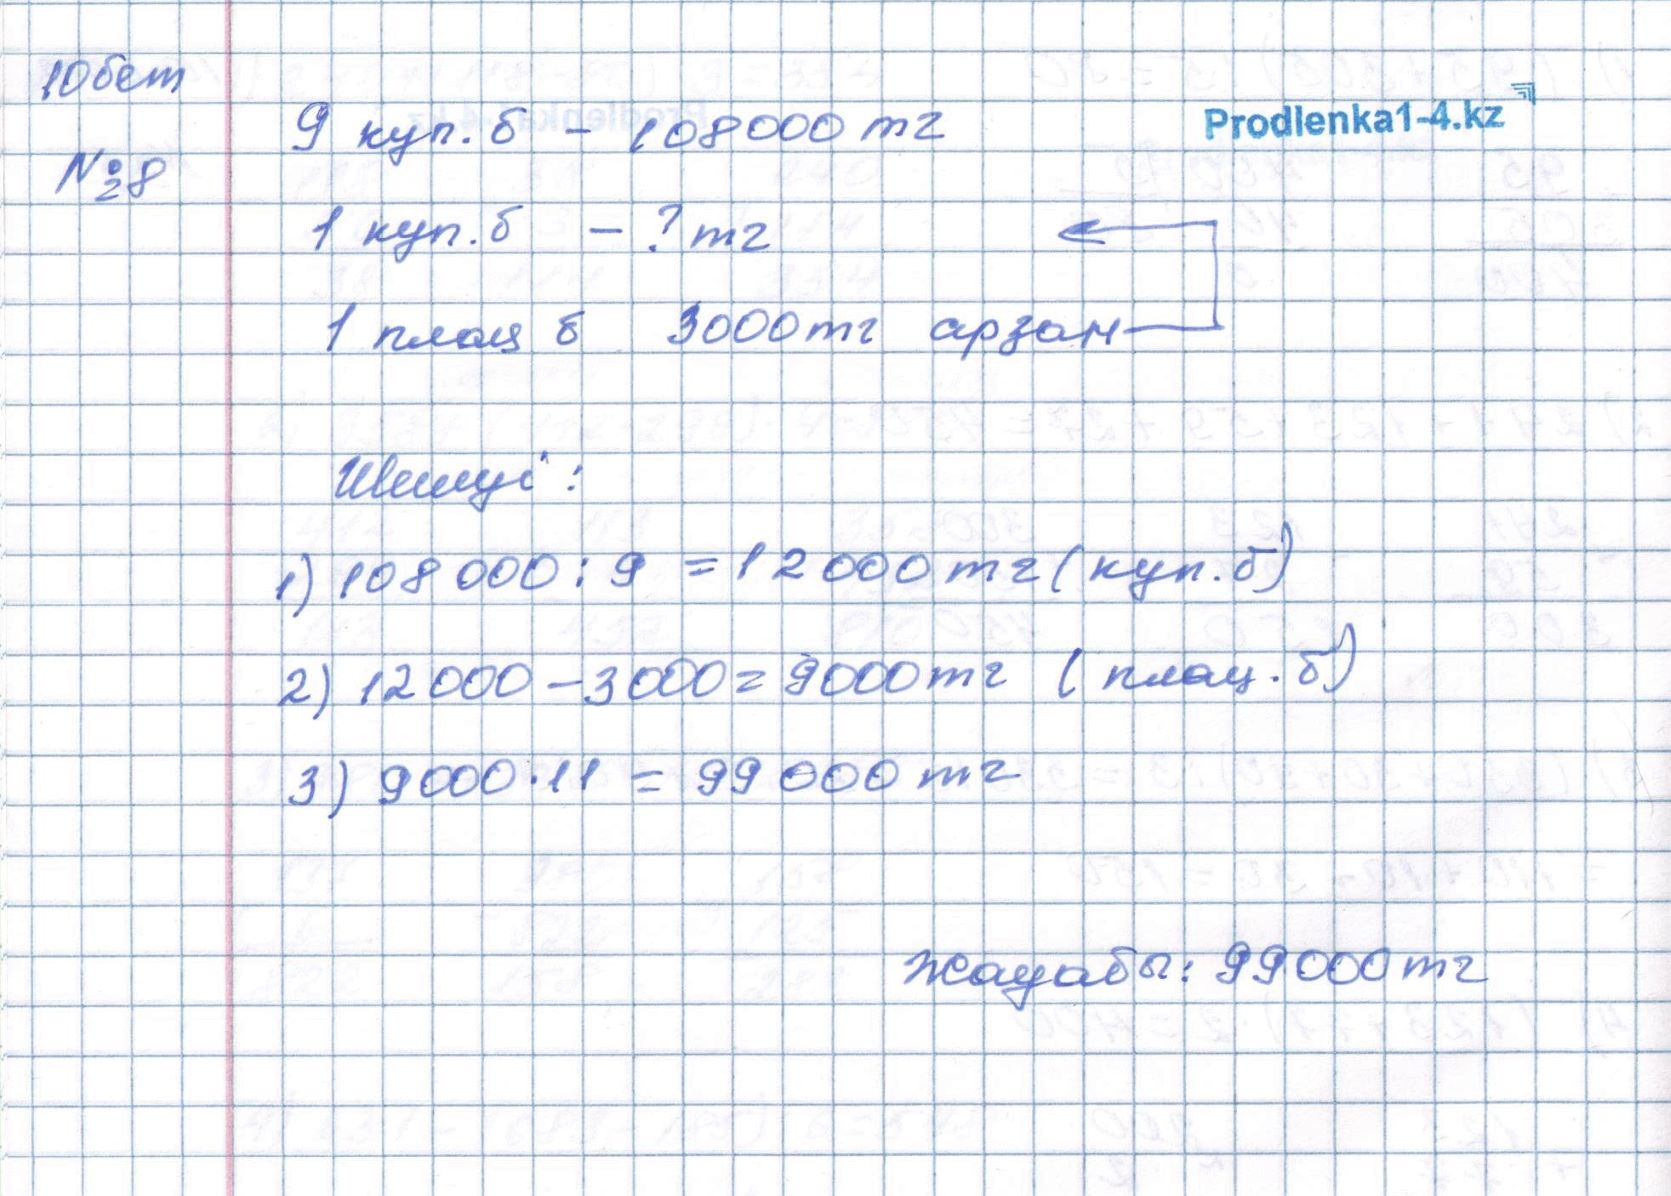 10 бет
Prodlenka1-4.kz
9 куп. б - 108000 тг
№ 28
1 куп. б - ? тг
1 плац б 3000 тг арзан
Шешуі:
1) 108 000 : 9 = 12 000 тг (куп. б)
2) 12 000 - 3 000 = 9000 тг (плац. б)
3) 9000 · 11 = 99 000 тг
Жауабы: 99000 тг